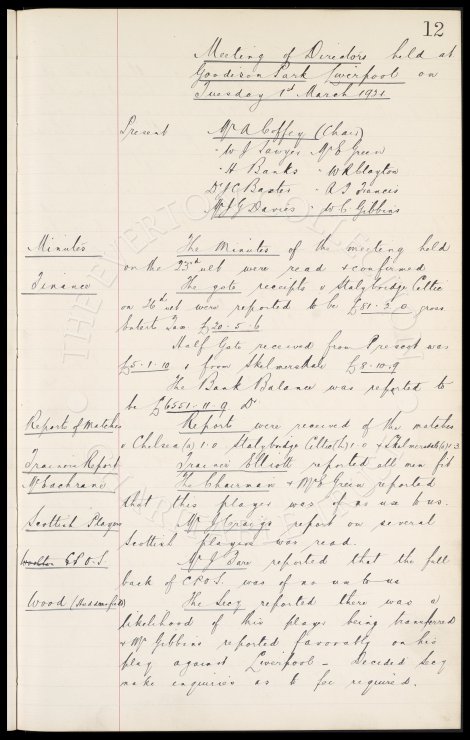 12
Meeting of Directors held at
Goodison Park Liverpool on
Tuesday 1st March 1921
Present Mr A Coffey (Chair)
" W J Sawyer Mr E Green
" H Banks " W R Clayton
Dr J C Baxter " A T Francis
Mr J G Davies " W C Gibbins
Minutes The Minutes of the meeting held
on the 23rd ult were read & confirmed
Finance The gate receipts v Stalybridge Celtic
on 26th ult were reported to be £81-3-0 gross
Entert Tax £20-5-6
Half Gate received from Prescot was
£5-1-10 & from Skelmersdale £8-10-9
The Bank Balance was reported to
be £6551-11-9 Dr
Reports of Matches Reports were received of the matches
v Chelsea (a) 1-0 Stalybridge Celtic (h) 1-0 & Skelmersdale (a) 1-3
Trainers Report Trainer Elliott reported all men fit
McEachrane The Chairman & Mr E Green reported
that this player was of no use to us.
Scottish Players Mr J Craigs report on several
Scottish players was read.
E.P.O.S. Mr J reported that the full
back of E.P.O.S. was of no use to us
Wood The Secy reported there was a
likelihood of this player being transferred
& Mr Gibbins reported favorably on his
play against Liverpool - Decided Secy
make enquiries as to fee required.